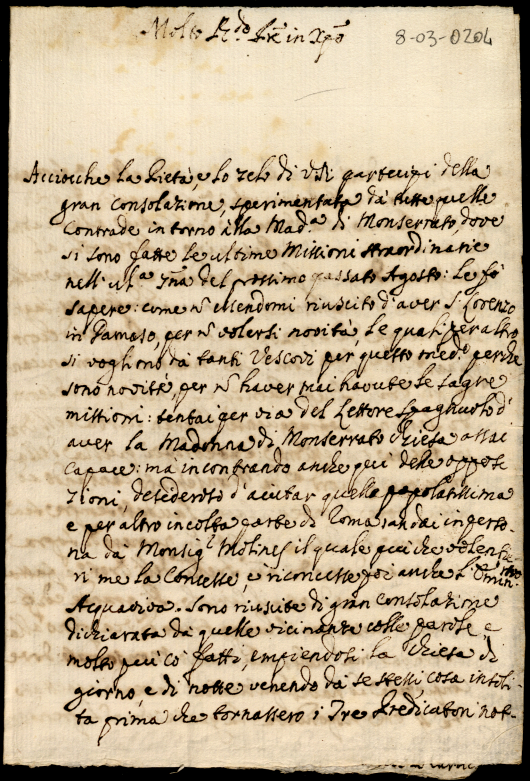 Molto R.do P.re in Xpō
8-03-0204
Acciocche la Pietà, e lo zelo di V.R. partecipi della
gran consolazione, sperimentata da tutte quelle
Contrade intorno alla Mad.a di Monserrato, dove
si sono fatte le ultime Missioni straordinarie
nell'ult.a del prossimo passato Agosto: le fò
sapere: come nō essendomi riuscito d'aver S. Lorenzo
in Damaso, per nō volersi novità, le quali per altro
si vogliono da tanti Vescovi per questo med.o perche
sono novità, per nō haver mai havute le sagre
missioni: tentai per via del Rettore Spagnuolo d'
aver la Madonna di Monserrato Chiesa assai
capace: ma incontrando anche qui delle opposi
zioni, desideroso d'aiutar quella popolatissima
e per altro incolta parte di Roma, andai in perso-
na da Monsig.r Molines, il quale più che volentie
ri me la Concesse, e riconcesse poi anche l'Emin.
Acquaviva. Sono riuscite di gran consolazione
dichiarata da quelle vicinanze colle parole e
molto più cō fatti, empiendosi la Chiesa di
giorno, e di notte venendo da se stessi, cosa insoli-
ta prima che tornassero i Tre Predicatori not-